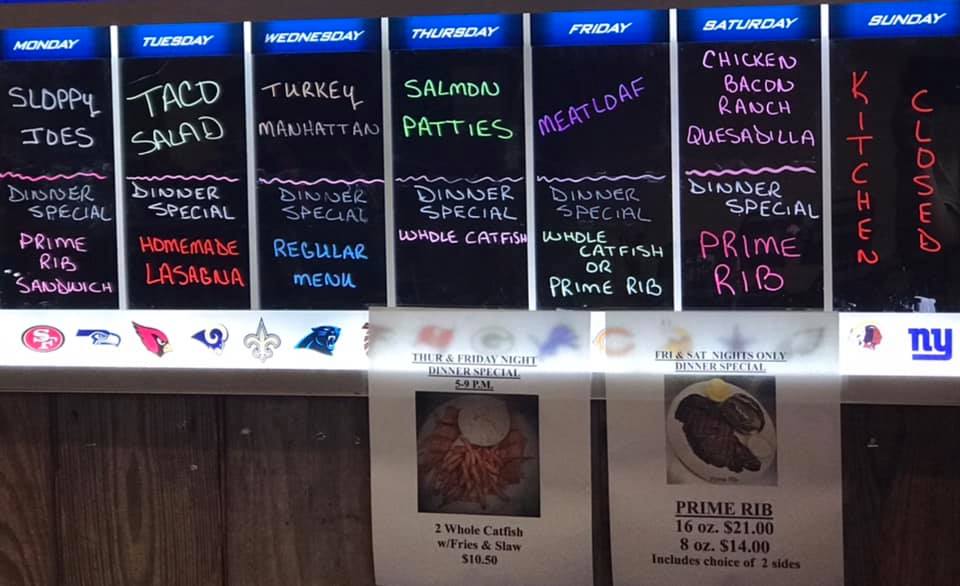 MONDAY
SLOPPY
JOES
DINNER
SPECIAL
PRIME
RIB
SANDWICH
TUESDAY
TACO
SALAD
DINNER
SPECIAL
HOMEMADE
LASAGNA
WEDNESDAY
TURKEY
MANHATTAN
DINNER
SPECIAL
REGULAR
MENU
THURSDAY
SALMON
PATTIES
DINNER
SPECIAL
WHOLE CATFISH
FRIDAY
MEATLOAF
DINNER
SPECIAL
WHOLE
CATFISH
OR
PRIME RIB
SATURDAY
CHICKEN
BACON
RANCH
QUESADILLA
DINNER
SPECIAL
PRIME
RIB
SUNDAY
KITCHEN
CLOSED
SF
ny
THUR & FRIDAY NIGHT
DINNER SPECIAL
5-9 P.M.
2 Whole Catfish
w/Fries & Slaw
$10.50
FRI & SAT NIGHTS ONLY
DINNER SPECIAL
PRIME RIB
16 oz. $21.00
8 oz. $14.00
Includes choice of 2 sides